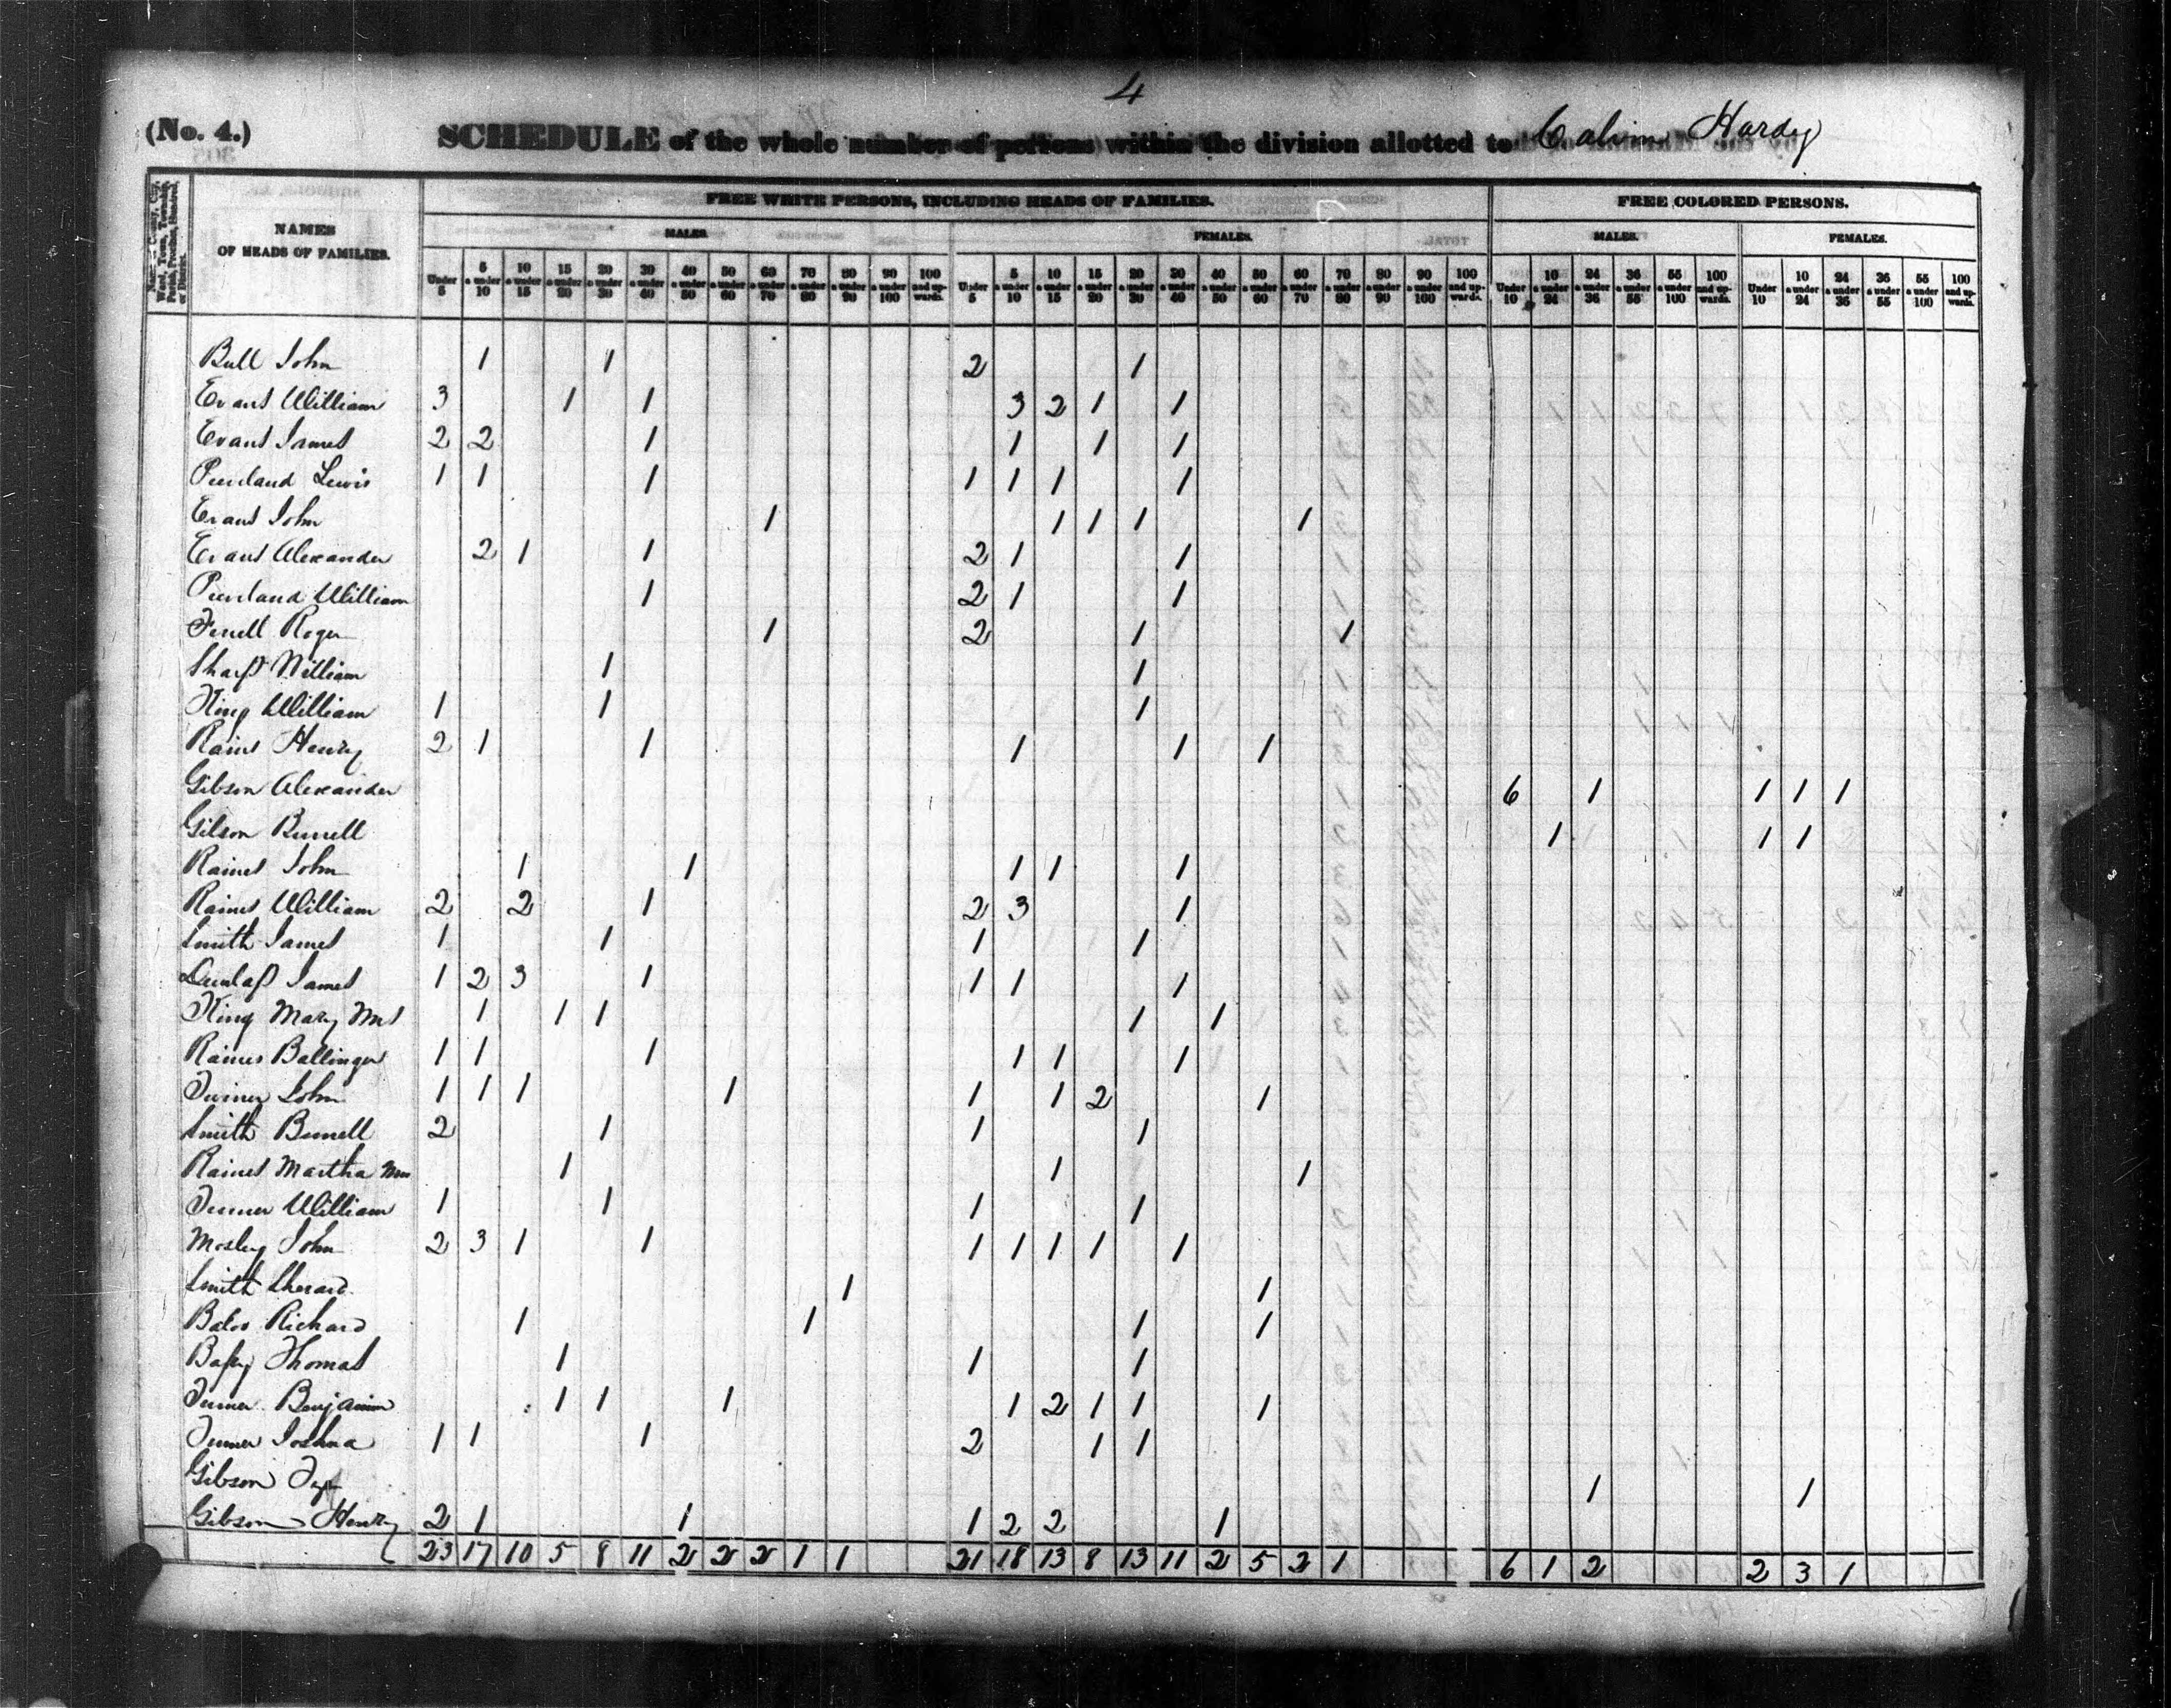 4
(No. 4.) SCHEDULE of the whole number of persons within the division allotted to Calvin Hardy
NAMES OF HEADS OF FAMILIES.
FREE WHITE PERSONS, INCLUDING HEADS OF FAMILIES.
FREE COLORED PERSONS.
MALES. FEMALES. MALES. FEMALES.
Under 5 | 5 & under 10 | 10 & under 15 | 15 & under 20 | 20 & under 30 | 30 & under 40 | 40 & under 50 | 50 & under 60 | 60 & under 70 | 70 & under 80 | 80 & under 90 | 90 & under 100 | 100 and upwards. | Under 5 | 5 & under 10 | 10 & under 15 | 15 & under 20 | 20 & under 30 | 30 & under 40 | 40 & under 50 | 50 & under 60 | 60 & under 70 | 70 & under 80 | 80 & under 90 | 90 & under 100 | 100 and upwards. | Under 10 | 10 & under 24 | 24 & under 36 | 36 & under 55 | 55 & under 100 | 100 and upwards. | Under 10 | 10 & under 24 | 24 & under 36 | 36 & under 55 | 55 & under 100 | 100 and upwards.
Bull John 1 1 2 1
Evans William 3 1 1 3 2 1 1
Evans James 2 2 1 1 1 1
Lewis 1 1 1 1 1 1 1
Evans John 1 1 1 1 1
Evans Alexander 2 1 1 2 1 1
William 1 2 1 1
Roger 1 2 1 1
Sharp William 1 1
King William 1 1 1
Rains Henry 2 1 1 1 1 1
Gibson Alexander 6 1 1 1 1
Gibson Burrell 1 1 1
Raines John 1 1 1 1 1
Raines William 2 2 1 2 3 1
Smith James 1 1 1 1
Dunlap James 1 2 3 1 1 1 1
King Mary Mrs 1 1 1 1 1
Raines Ballinger 1 1 1 1 1 1
Turner John 1 1 1 1 1 1 2 1
Smith Burrell 2 1 1 1
Raines Martha Mrs 1 1 1
Turner William 1 1 1 1
Mosley John 2 3 1 1 1 1 1 1 1
Smith Sherard 1 1
Richard 1 1 1 1
Thomas 1 1 1
Turner Benjamin 1 1 1 1 2 1 1 1
Turner Joshua 1 1 1 2 1 1
Gibson 1 1
Gibson Henry 2 1 1 1 2 2 1
23 17 10 5 8 11 2 2 2 1 1 21 18 13 8 13 11 2 5 2 1 6 1 2 2 3 1